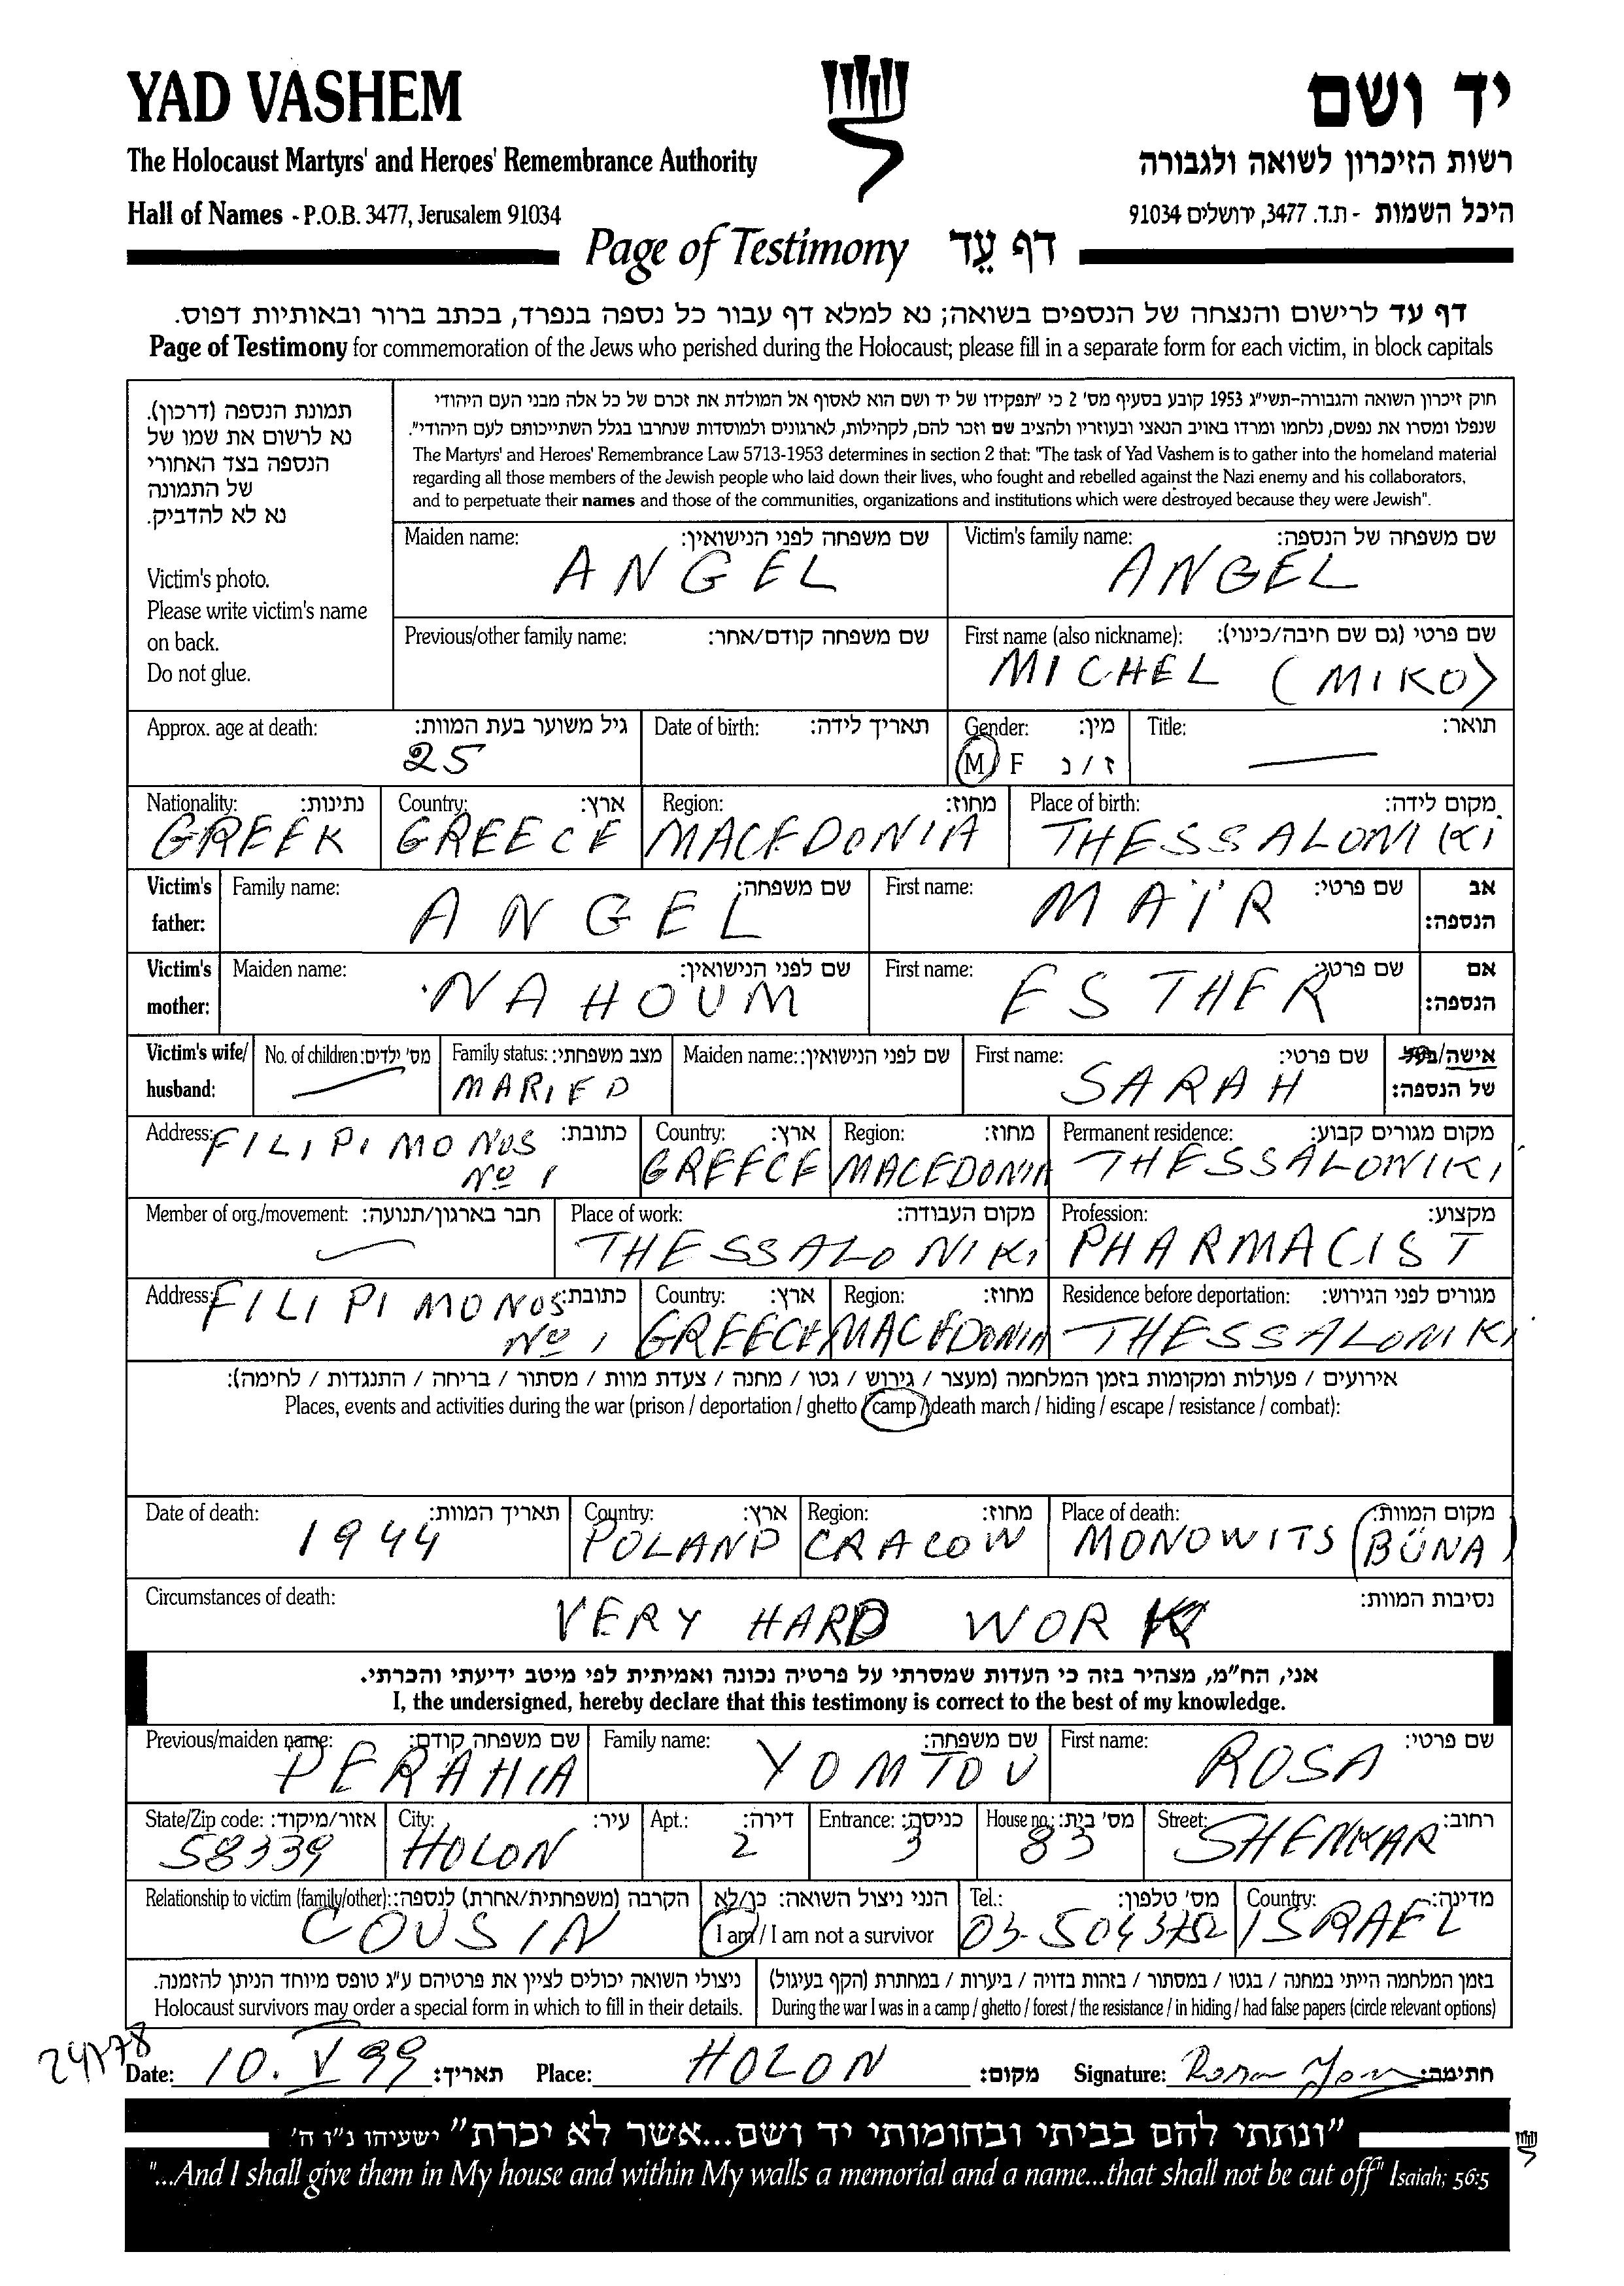 YAD VASHEM
יד ושם
The Holocaust Martyrs' and Heroes' Remembrance Authority
רשות הזיכרון לשואה ולגבורה
Hall of Names - P.O.B. 3477, Jerusalem 91034
היכל השמות - ת.ד. 3477, ירושלים 91034
Page of Testimony דף עֵד
דף עד לרישום והנצחה של הנספים בשואה; נא למלא דף עבור כל נספה בנפרד, בכתב ברור ובאותיות דפוס.
Page of Testimony for commemoration of the Jews who perished during the Holocaust; please fill in a separate form for each victim, in block capitals
תמונת הנספה (דרכון).
נא לרשום את שמו של
הנספה בצד האחורי
של התמונה
נא לא להדביק.
Victim's photo.
Please write victim's name
on back.
Do not glue.
חוק זיכרון השואה והגבורה-תשי"ג 1953 קובע בסעיף מס' 2 כי "תפקידו של יד ושם הוא לאסוף אל המולדת את זכרם של כל אלה מבני העם היהודי
שנפלו ומסרו את נפשם, נלחמו ומרדו באויב הנאצי ובעוזריו ולהציב שם וזכר להם, לקהילות, לארגונים ולמוסדות שנחרבו בגלל השתייכותם לעם היהודי".
The Martyrs' and Heroes' Remembrance Law 5713-1953 determines in section 2 that: "The task of Yad Vashem is to gather into the homeland material
regarding all those members of the Jewish people who laid down their lives, who fought and rebelled against the Nazi enemy and his collaborators,
and to perpetuate their names and those of the communities, organizations and institutions which were destroyed because they were Jewish".
Maiden name: שם משפחה לפני הנישואין:
ANGEL
Victim's family name: שם משפחה של הנספה:
ANGEL
Previous/other family name: שם משפחה קודם/אחר:
First name (also nickname): שם פרטי (גם שם חיבה/כינוי):
MICHEL (MIKO)
Approx. age at death: גיל משוער בעת המוות:
25
Date of birth: תאריך לידה:
Gender: מין:
M F ז / נ
Title: תואר:
—
Nationality: נתינות:
GREEK
Country: ארץ:
GREECE
Region: מחוז:
MACEDONIA
Place of birth: מקום לידה:
THESSALONIKI
Victim's father:
Family name: שם משפחה:
ANGEL
First name: שם פרטי:
MAÏR
אב הנספה:
Victim's mother:
Maiden name: שם לפני הנישואין:
NAHOUM
First name: שם פרטי:
ESTHER
אם הנספה:
Victim's wife/ husband:
No. of children: מס' ילדים:
—
Family status: מצב משפחתי:
MARIED
Maiden name: שם לפני הנישואין:
First name: שם פרטי:
SARAH
אישה/בעל של הנספה:
Address: כתובת:
FILIPI MONOS
No 1
Country: ארץ:
GREECE
Region: מחוז:
MACEDONIA
Permanent residence: מקום מגורים קבוע:
THESSALONIKI
Member of org./movement: חבר בארגון/תנועה:
—
Place of work: מקום העבודה:
THESSALONIKI
Profession: מקצוע:
PHARMACIST
Address: כתובת:
FILIPI MONOS
No 1
Country: ארץ:
GREECE
Region: מחוז:
MACEDONIA
Residence before deportation: מגורים לפני הגירוש:
THESSALONIKI
אירועים / פעולות ומקומות בזמן המלחמה (מעצר / גירוש / גטו / מחנה / צעדת מוות / מסתור / בריחה / התנגדות / לחימה):
Places, events and activities during the war (prison / deportation / ghetto / camp / death march / hiding / escape / resistance / combat):
Date of death: תאריך המוות:
1944
Country: ארץ:
POLAND
Region: מחוז:
CRACOW
Place of death: מקום המוות:
MONOWITS (BÜNA)
Circumstances of death: נסיבות המוות:
VERY HARD WORK
אני, הח"מ, מצהיר בזה כי העדות שמסרתי על פרטיה נכונה ואמיתית לפי מיטב ידיעתי והכרתי.
I, the undersigned, hereby declare that this testimony is correct to the best of my knowledge.
Previous/maiden name: שם משפחה קודם:
PERAHIA
Family name: שם משפחה:
YOMTOV
First name: שם פרטי:
ROSA
State/Zip code: אזור/מיקוד:
58339
City: עיר:
HOLON
Apt.: דירה:
2
Entrance: כניסה:
3
House no.: מס' בית:
83
Street: רחוב:
SHENKAR
Relationship to victim (family/other): הקרבה (משפחתית/אחרת) לנספה:
COUSIN
הנני ניצול השואה: כן/לא
I am / I am not a survivor
Tel.: מס' טלפון:
03-5043752
Country: מדינה:
ISRAEL
ניצולי השואה יכולים לציין את פרטיהם ע"ג טופס מיוחד הניתן להזמנה.
Holocaust survivors may order a special form in which to fill in their details.
בזמן המלחמה הייתי במחנה / בגטו / במסתור / בזהות בדויה / ביערות / במחתרת (הקף בעיגול)
During the war I was in a camp / ghetto / forest / the resistance / in hiding / had false papers (circle relevant options)
Date: 10. V 99 תאריך: Place: HOLON מקום: Signature: Rosa Yom חתימה:
"ונתתי להם בביתי ובחומותי יד ושם...אשר לא יכרת" ישעיהו נ"ו ה'
"...And I shall give them in My house and within My walls a memorial and a name...that shall not be cut off" Isaiah; 56:5